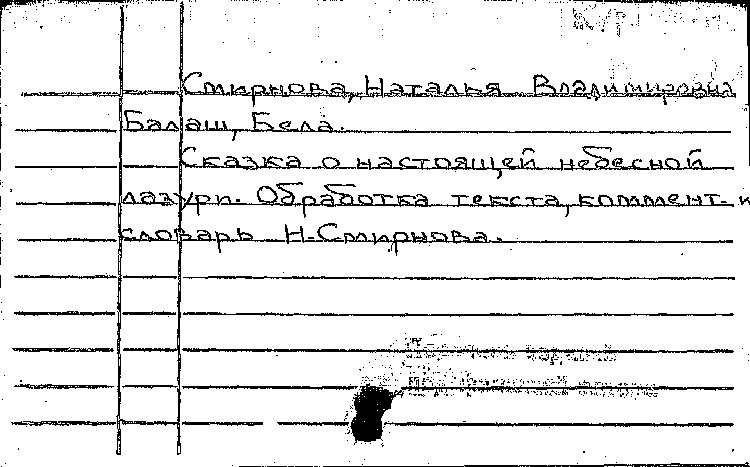 Смирнова, Наталья Владимировна
Балаш, Бела.
Сказка о настоящей небесной
лазури. Обработка текста, коммент. и
словарь Н. Смирнова.